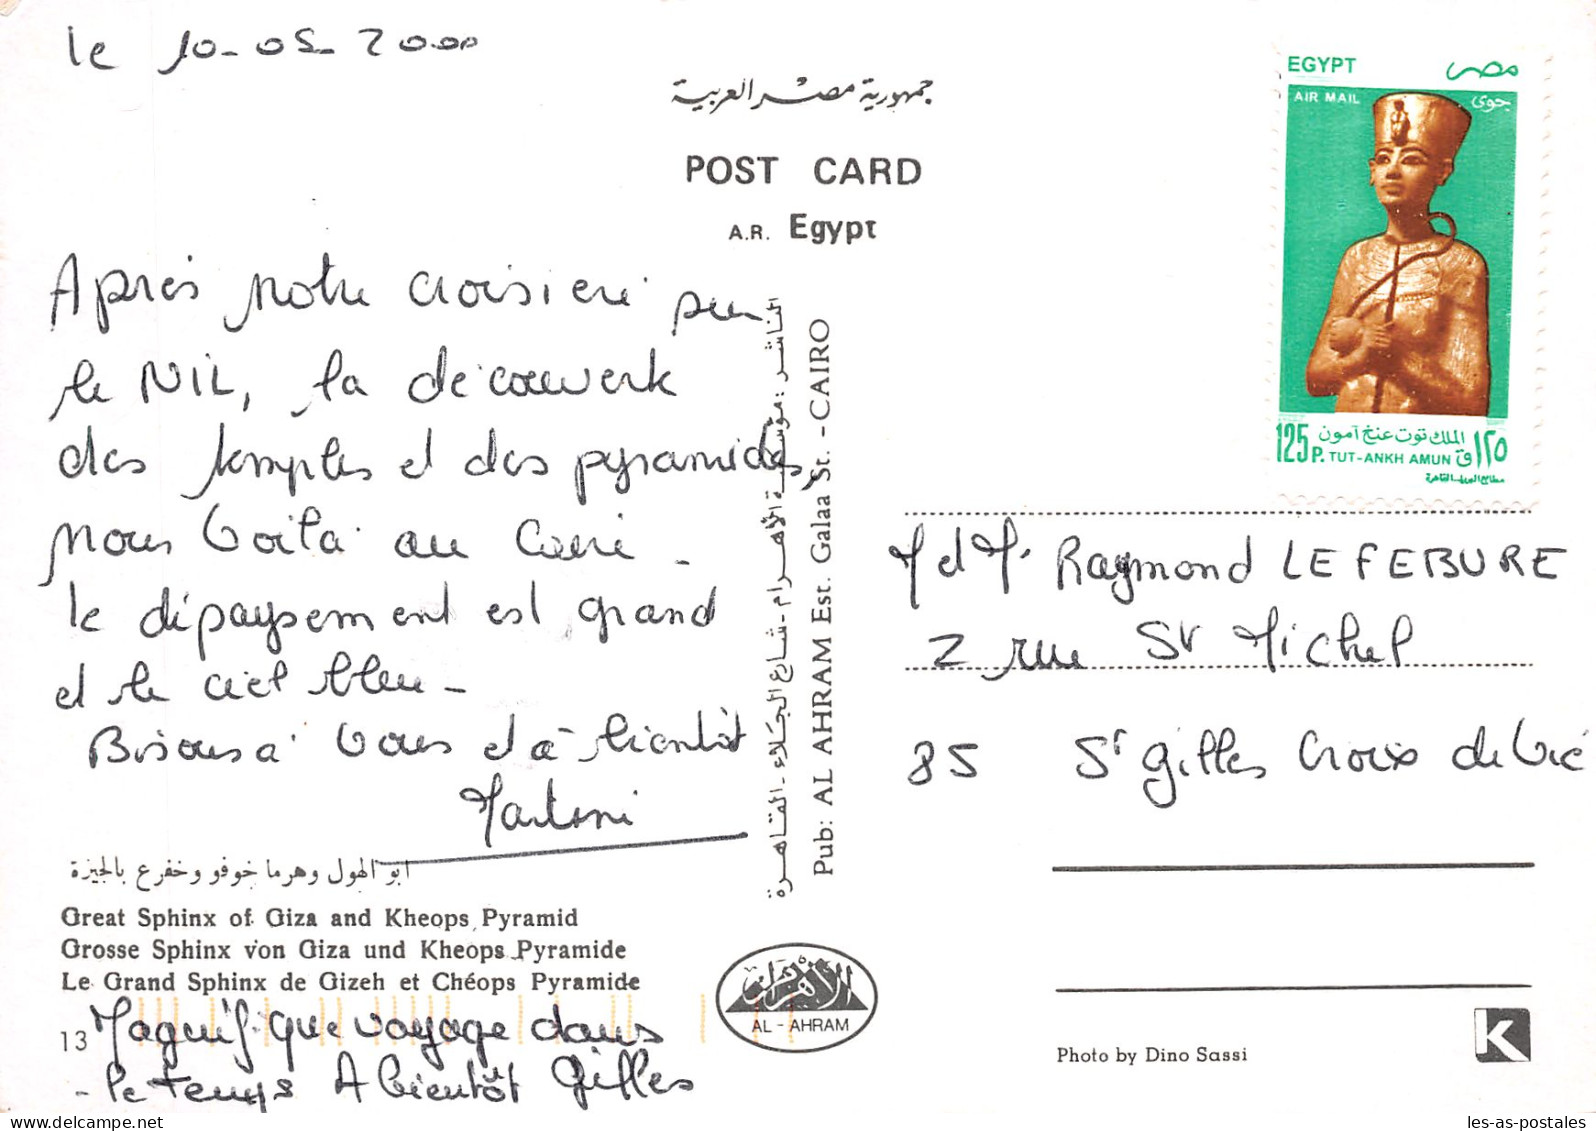 le 10-05-2000
جمهورية مصر العربية
POST CARD
A.R. Egypt
EGYPT مصر
AIR MAIL جوى
الملك توت عنخ آمون
125 P. TUT-ANKH AMUN ١٢٥ ق
مطابع البريد القاهرة
Après notre croisière sur
le NIL, la découverte
des temples et des pyramides
nous voilà au Caire -
le dépaysement est grand
et le ciel bleu -
Bisous à vous et à bientôt
Martine
الناشر : مؤسسة الأهرام - شارع الجلاء - القاهرة
Pub: AL AHRAM Est. Galaa St. - CAIRO
M et M. Raymond LEFEBURE
2 rue St Michel
85 St Gilles Croix de Vie
ابو الهول وهرما خوفو وخفرع بالجيزة
Great Sphinx of Giza and Kheops Pyramid
Grosse Sphinx von Giza und Kheops Pyramide
Le Grand Sphinx de Gizeh et Chéops Pyramide
13 Magnifique voyage dans
- le temps A bientôt Gilles
الأهرام
AL - AHRAM
Photo by Dino Sassi
K
les-as-postales
les-as-postales.com